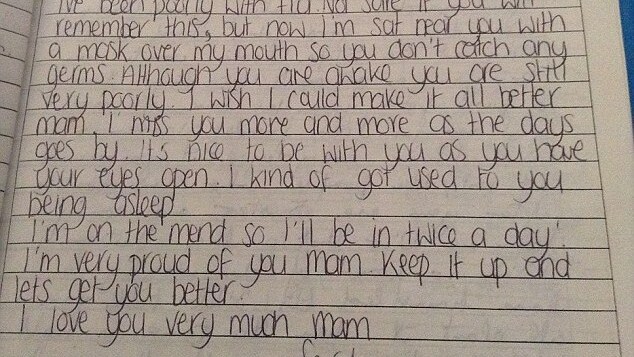 I've been poorly with flu. Not sure if you will
remember this, but now I'm sat near you with
a mask over my mouth so you don't catch any
germs. Although you are awake you are still
very poorly. I wish I could make it all better
mam, I miss you more and more as the days
goes by. It's nice to be with you as you have
your eyes open. I kind of got used to you
being asleep.
I'm on the mend so I'll be in twice a day.
I'm very proud of you mam. Keep it up and
lets get you better.
I love you very much mam